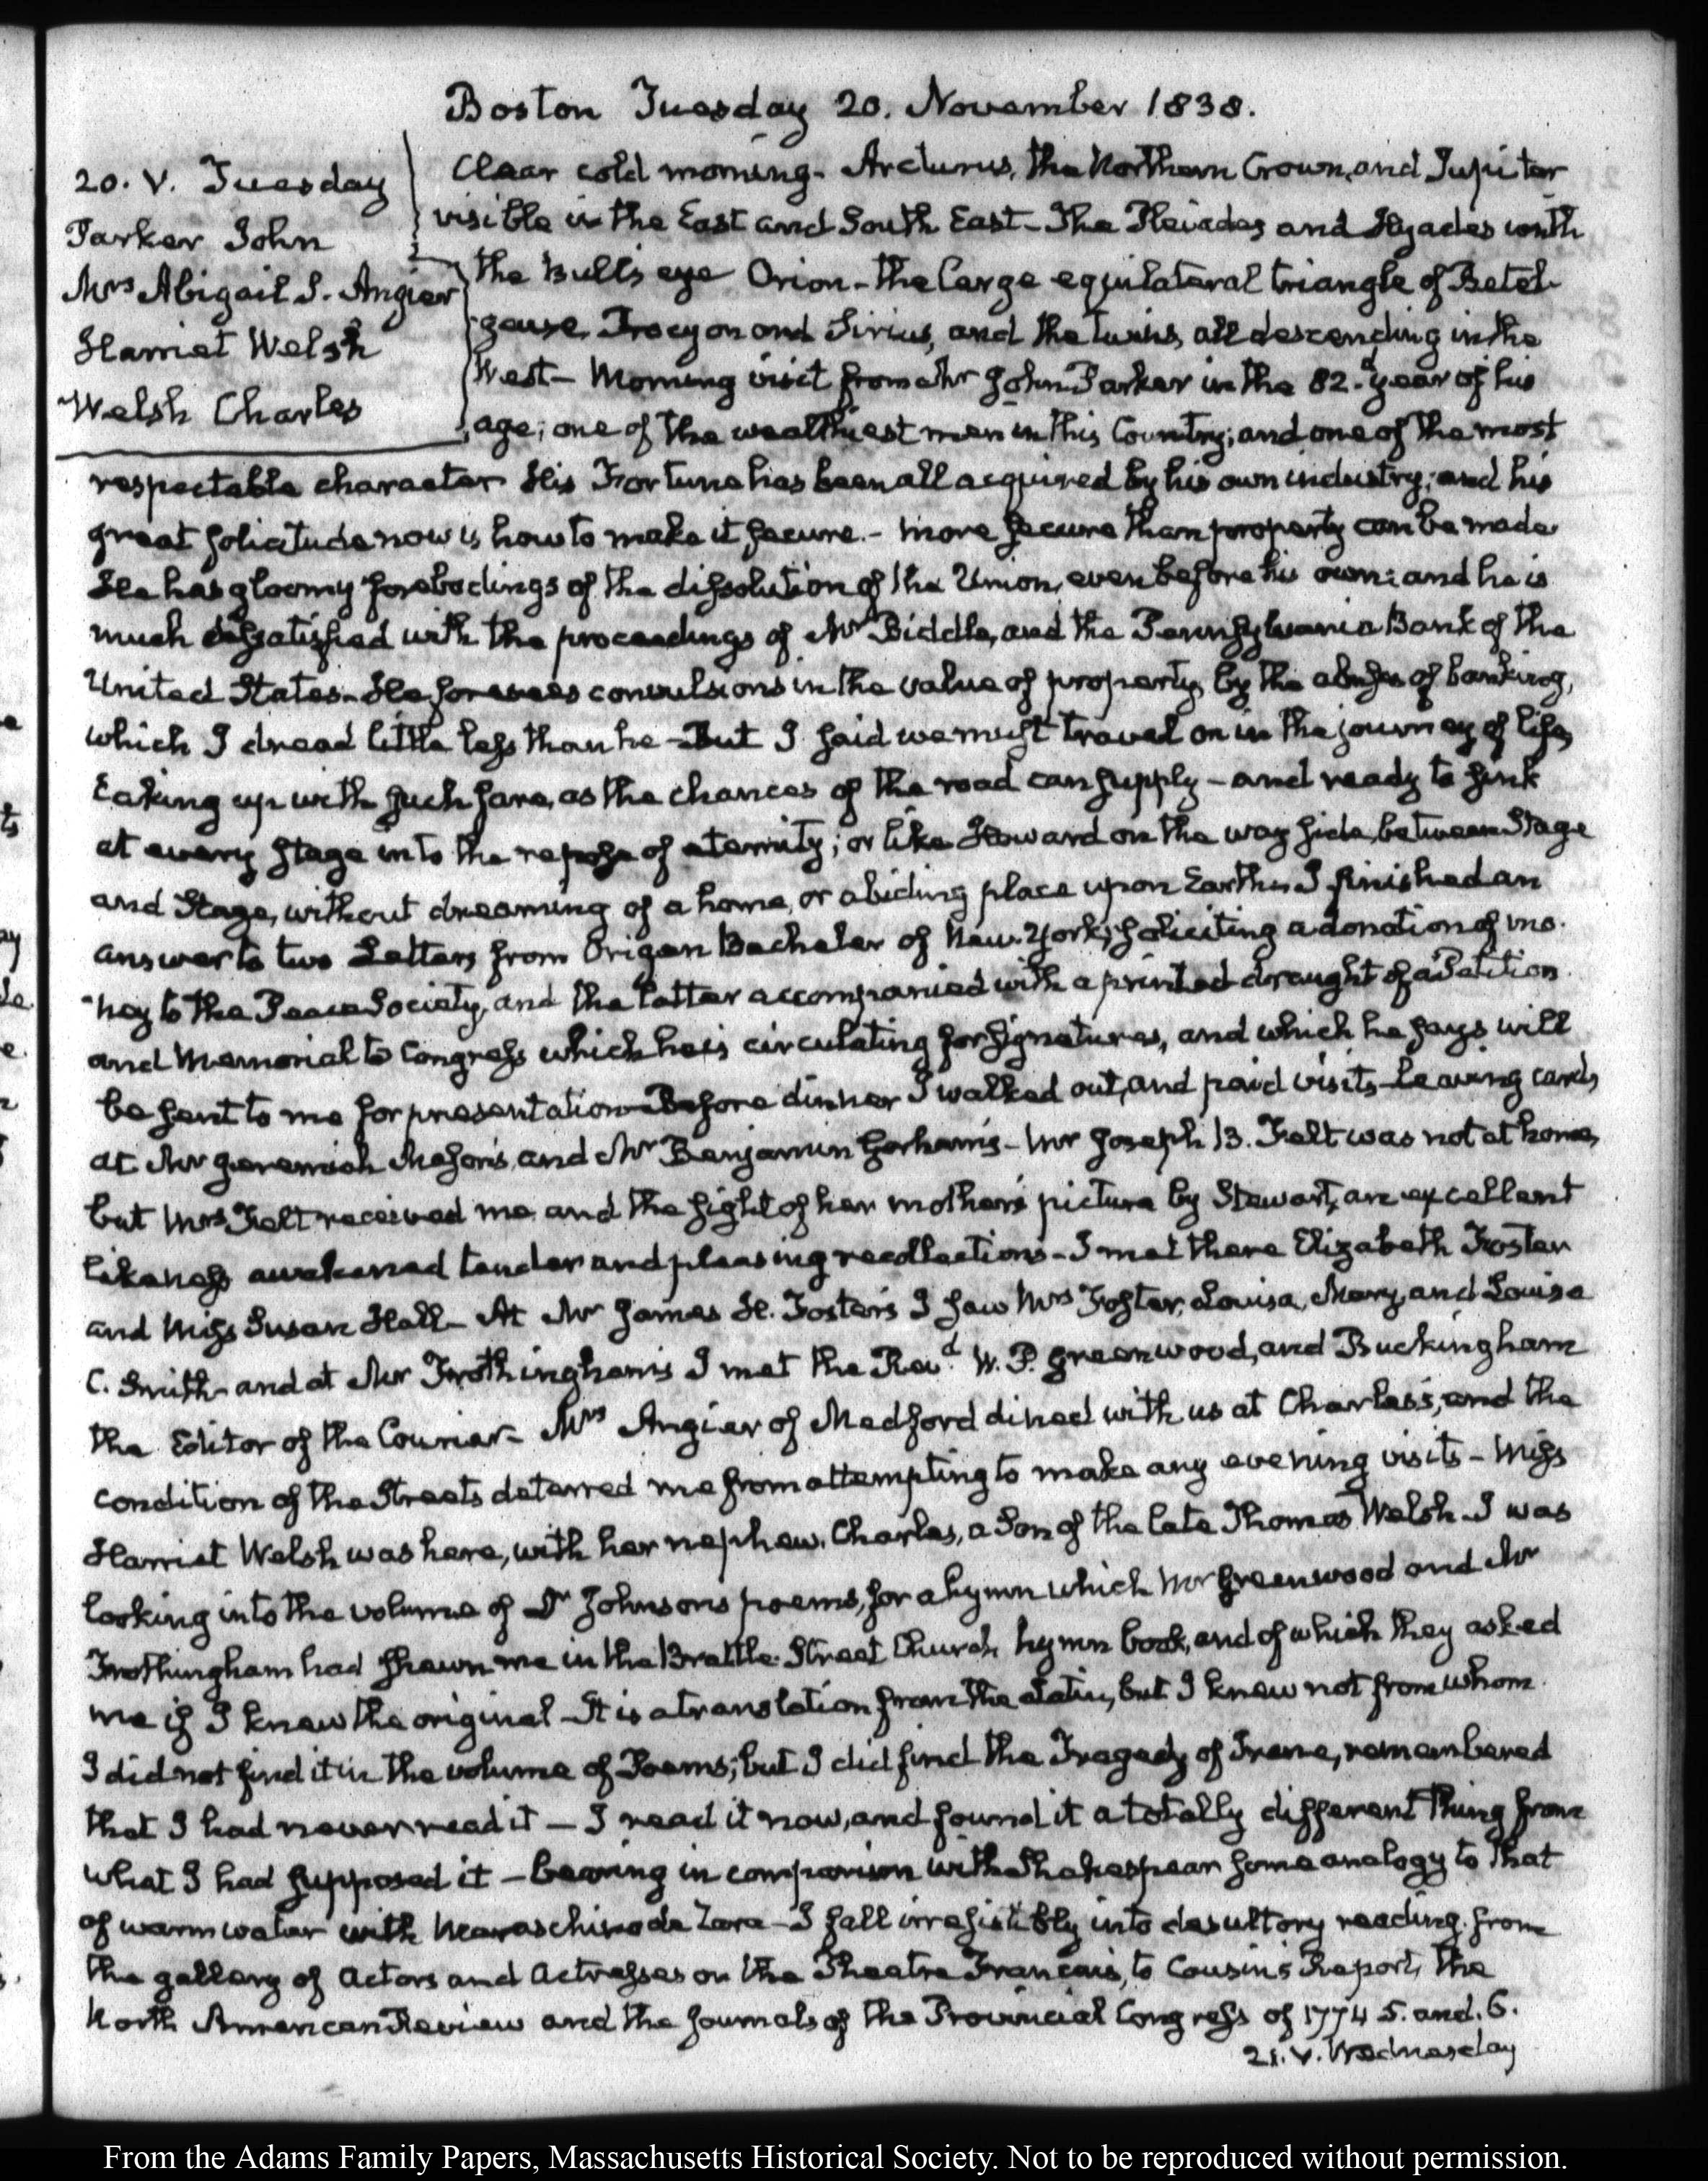 Boston Tuesday 20. November 1838.
20. V. Tuesday
Parker John
Mrs Abigail S. Angier
Harriet Welsh
Welsh Charles
Clear cold morning. Arcturus, the Northern Crown, and Jupiter
visible in the East and South East – The Pleiades and Hyades with
the Bulls eye Orion – the large equilateral triangle of Betel-
geuse, Procyon and Sirius, and the twins, all descending in the
West – Morning visit from Mr John Parker in the 82.d year of his
age; one of the wealthiest men in this Country; and one of the most
respectable character. His Fortune has been all acquired by his own industry; and his
great solicitude now is how to make it secure. – more secure than property can be made
He has gloomy forebodings of the dissolution of the Union, even before his own: and he is
much dissatisfied with the proceedings of Mr Biddle, and the Pennsylvania Bank of the
United States – He foresees convulsions in the value of property, by the abuses of banking,
which I dread little less than he – But I said we must travel on in the journey of life,
taking up with such fare, as the chances of the road can supply – and ready to sink
at every stage into the repose of eternity; or like Howard on the way side, between Stage
and Stage, without dreaming of a home, or abiding place upon Earth. I finished an
answer to two Letters from Origen Bacheler of New-York; soliciting a donation of mo-
ney to the Peace Society, and the latter accompanied with a printed draught of a Petition
and Memorial to Congress which he is circulating for signatures, and which he says will
be sent to me for presentation – Before dinner I walked out, and paid visits – leaving cards
at Mr Jeremiah Mason's, and Mr Benjamin Gorham's – Mr Joseph B. Felt was not at home,
but Mrs Felt received me and the sight of her mother's picture by Stewart, an excellent
likeness awakened tender and pleasing recollections – I met there Elizabeth Foster
and Miss Susan Hall – At Mr James H. Foster's I saw Mrs Foster, Louisa, Mary, and Louisa
C. Smith – and at Mr Frothingham's I met the Rev.d W. P. Greenwood, and Buckingham
the Editor of the Courier – Mrs Angier of Medford dined with us at Charles's, and the
condition of the Streets deterred me from attempting to make any evening visits – Miss
Harriet Welsh was here, with her nephew, Charles, a Son of the late Thomas Welsh – I was
looking into the volume of Dr Johnson's poems, for a hymn which Mr Greenwood and Mr
Frothingham had shewn me in the Brattle-Street Church hymn book, and of which they asked
me if I knew the original – It is a translation from the Latin, but I knew not from whom.
I did not find it in the volume of Poems; but I did find the Tragedy of Irene, remembered
that I had never read it – I read it now, and found it a totally different thing from
what I had supposed it – bearing in comparison with Shakespear some analogy to that
of warm water with Maraschino de Zara – I fall irresistibly into desultory reading. from
the gallery of Actors and Actresses on the Theatre Francais, to Cousin's Report, the
North American Review and the Journals of the Provincial Congress of 1774 5. and. 6.
21. V. Wednesday
From the Adams Family Papers, Massachusetts Historical Society. Not to be reproduced without permission.